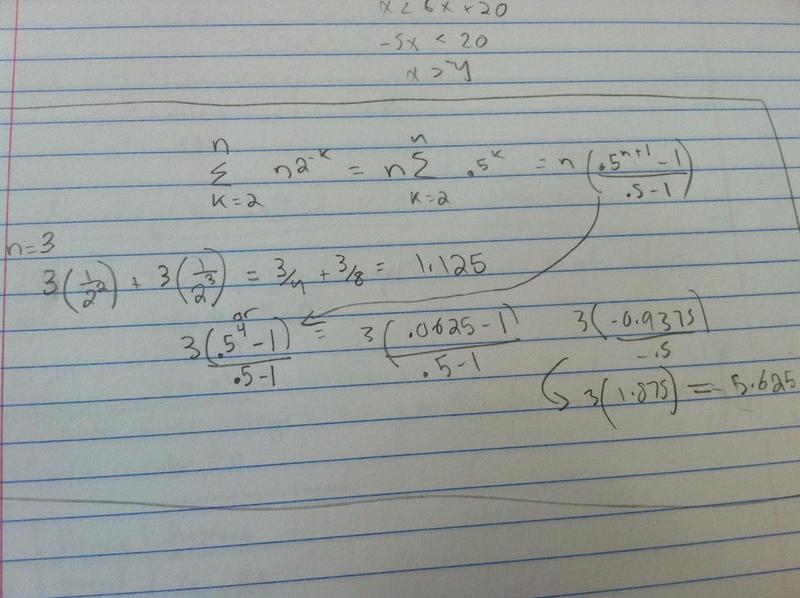 x < 6x + 20
-5x < 20
x > -4
n n
∑ n2^-k = n∑ .5^k = n(.5^(n+1) - 1 / .5 - 1)
k=2 k=2
n=3
3(1/2^2) + 3(1/2^3) = 3/4 + 3/8 = 1.125
or
3(.5^4 - 1 / .5 - 1) = 3(.0625 - 1 / .5 - 1) 3(-0.9375 / -.5)
3(1.875) = 5.625